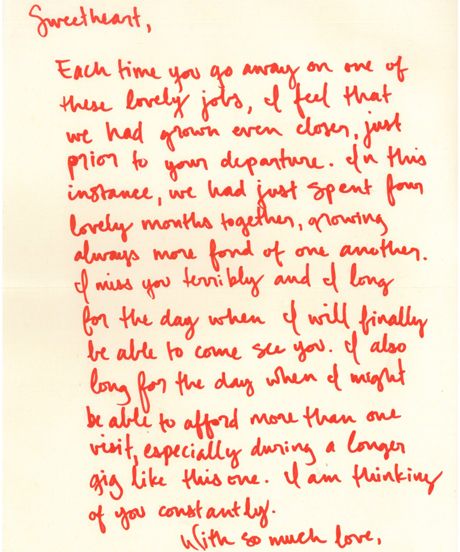 Sweetheart,
Each time you go away on one of
these lovely jobs, I feel that
we had grown even closer, just
prior to your departure. In this
instance, we had just spent four
lovely months together, growing
always more fond of one another.
I miss you terribly and I long
for the day when I will finally
be able to come see you. I also
long for the day when I might
be able to afford more than one
visit, especially during a longer
gig like this one. I am thinking
of you constantly.
With so much love,